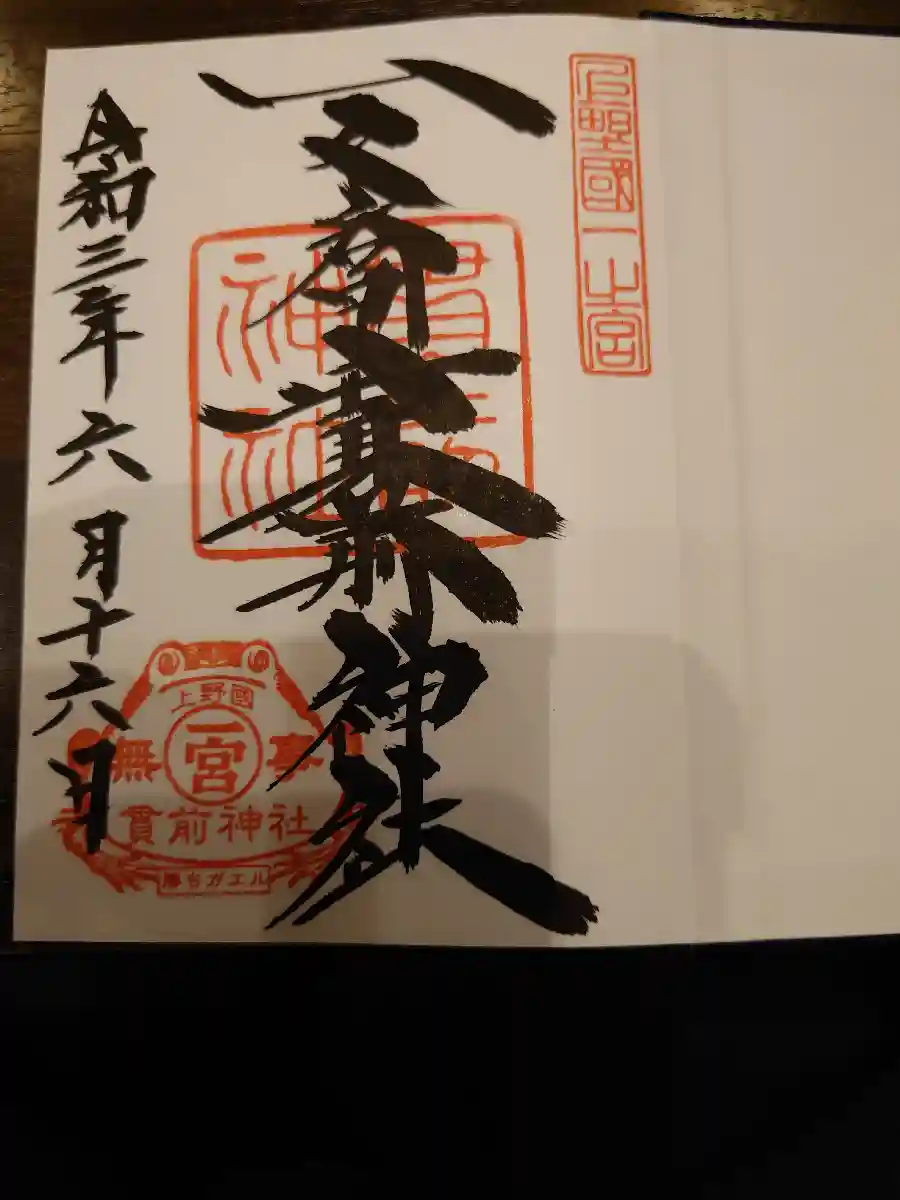 上野國一之宮
一之宮貫前神社
貫前神社
令和三年六月十六日
上野國
一宮
無事
貫前神社
勝ちガエル